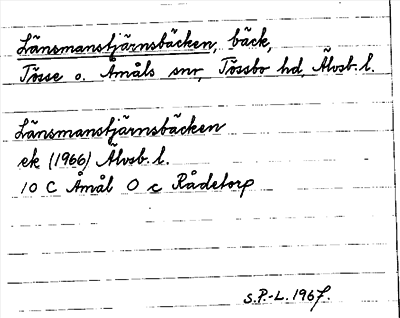 Länsmanstjärnsbäcken, bäck,
Tösse o. Åmåls snr, Tössbo hd, Älvsb. l.
Länsmanstjärnsbäcken
ek (1966) Älvsb. l.
10 C Åmål O c Rådetorp
S.P.-L. 1967.